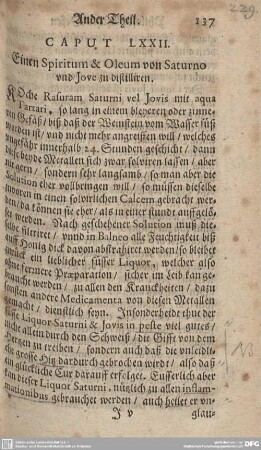 229.
Ander Theil. 137
CAPUT LXXII.
Einen Spiritum & Oleum von Saturno
vnd Jove zu distilliren.
KOche Rasuram Saturni vel Jovis mit aqua
Tartari, so lang in einem bleyeren oder zinne-
nen Gefäß / biß daß der Weinstein vom Wasser süß
worden ist / und nicht mehr angreiffen will / welches
ungefähr innerhalb 24. Stunden geschicht / dann
diese beyde Metallen sich zwar solviren lassen / aber
nit gern / sondern sehr langsamb / so man aber die
Solution eher vollbringen will / so müssen dieselbe
zuvoren in einen solvirlichen Calcem gebracht wer-
den / da können sie eher / als in einer stund auffgelö-
set werden. Nach geschehener Solution muß die-
selbe filtriret / vnnd in Balneo alle Feuchtigkeit biß
auff Honig dick davon abstrahiret werden / so bleibet
zurück ein lieblicher süsser Liquor, welcher also
ohne fernere Præparation / sicher im Leib kan ge-
braucht werden / zu allen den Kranckheiten / dazu
sonsten andere Medicamenta von diesen Metallen
gemacht / dienstlich seyn. Insonderheit thut der
süsse Liquor Saturni & Jovis in peste viel gutes /
nicht allein durch den Schweiß / die Gifft von dem
Hertzen zu treiben / sondern auch daß die unleidli-
che grosse Hitz dardurch gebrochen wird / also daß
ein glückliche Cur darauff erfolget. Eusserlich aber
kan dieser Liquor Saturni, nützlich zu allen inflam-
mationibus gebrauchet werden / auch heilet er vn-
J v glau-